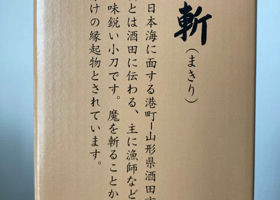 斬
（まきり）
日本海に面する港町ー山形県酒田市
とは酒田に伝わる、主に漁師など
味鋭い小刀です。魔を斬ることか
けの縁起物とされています。